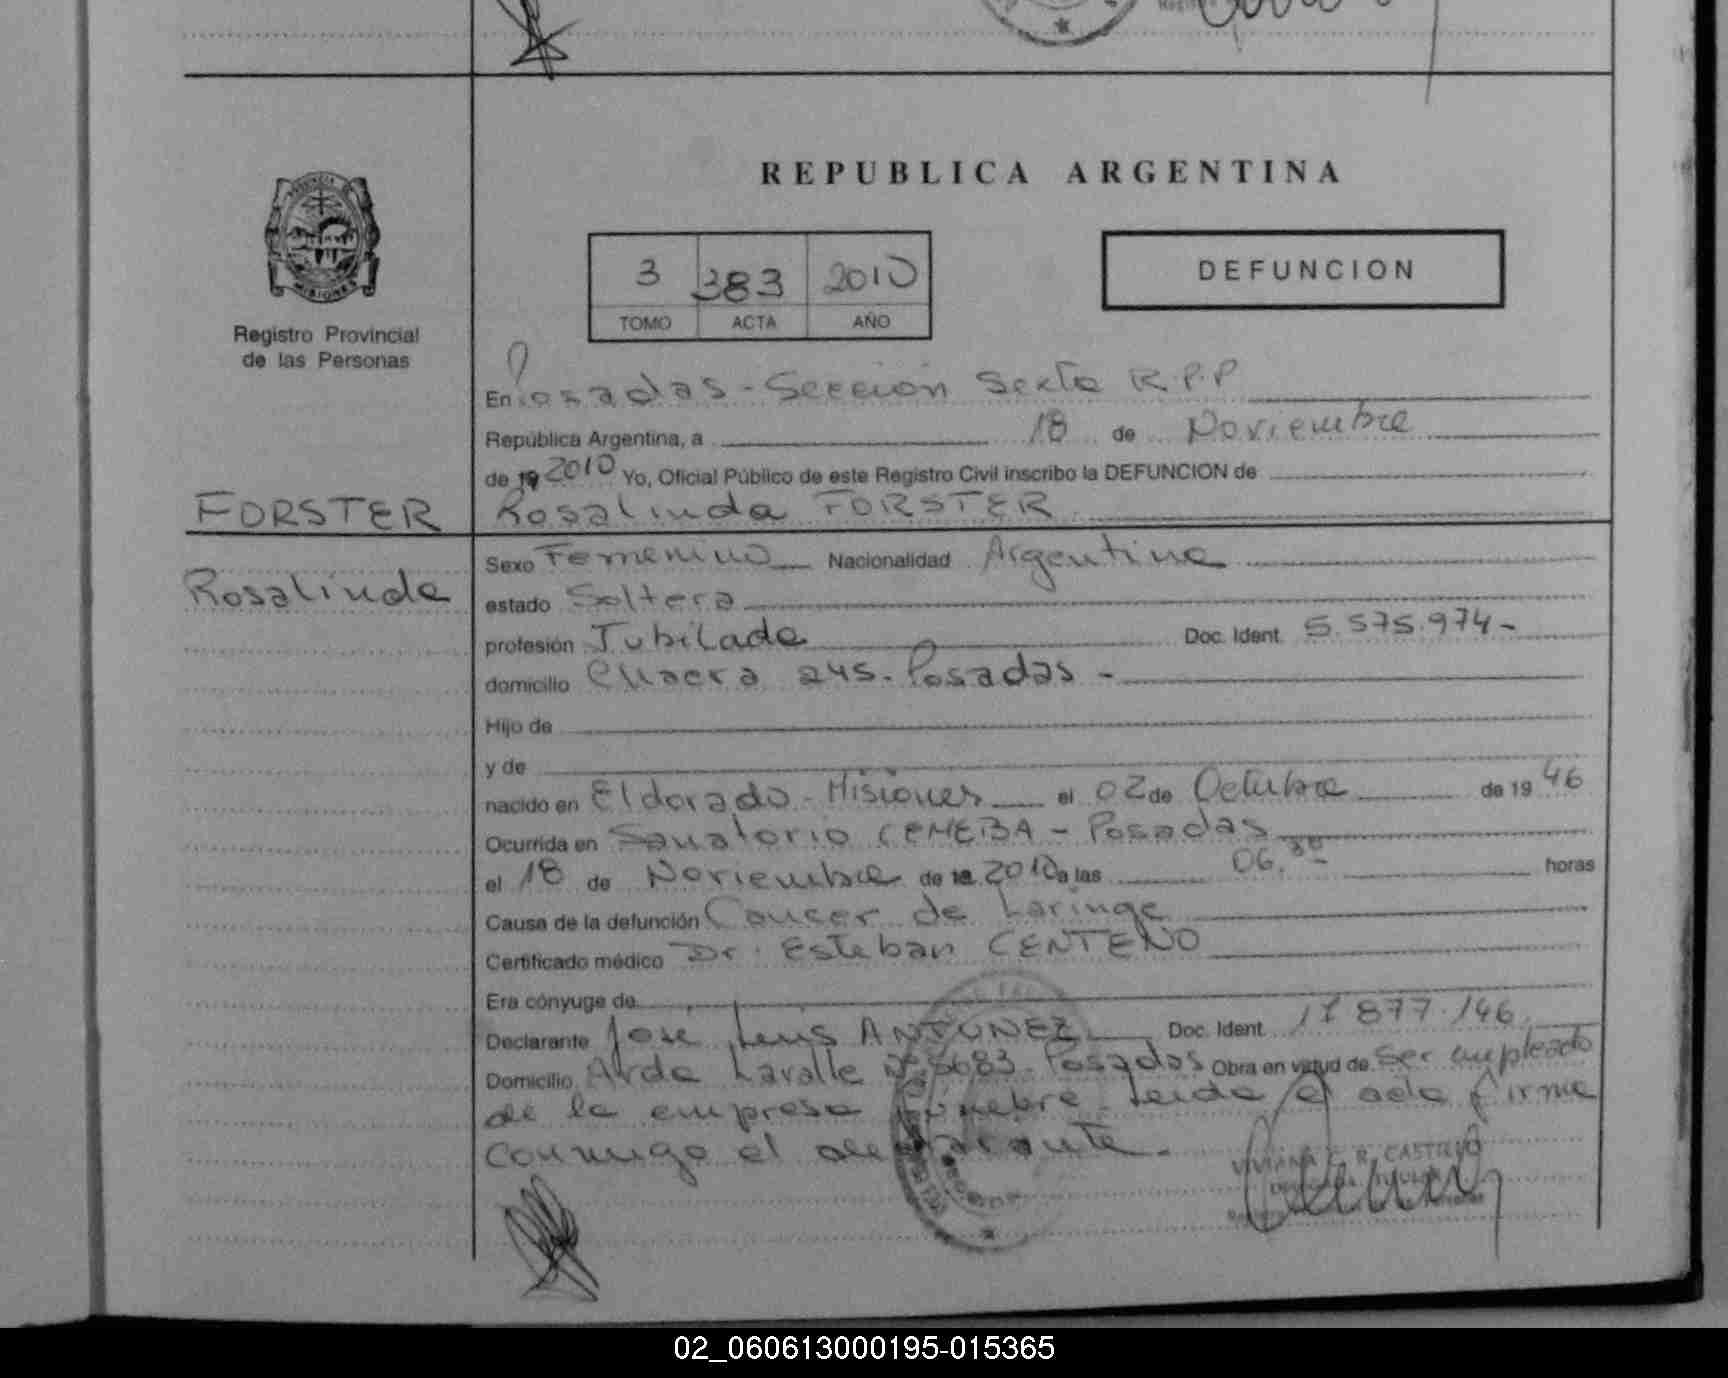 REPUBLICA ARGENTINA
3 383 2010
TOMO ACTA AÑO
DEFUNCION
PROVINCIA DE
MISIONES
Registro Provincial
de las Personas
En Posadas - Sección Sexta R.P.P
República Argentina, a 18 de Noviembre
de 19 2010 Yo, Oficial Público de este Registro Civil inscribo la DEFUNCION de
FORSTER
Rosalinda FORSTER
Rosalinda
Sexo Femenino Nacionalidad Argentina
estado Soltera
profesión Jubilada Doc. Ident. 5.575.974-
domicilio Chacra 245. Posadas -
Hijo de
y de
nacido en Eldorado - Misiones el 02 de Octubre de 19 46
Ocurrida en Sanatorio CEMEBA - Posadas
el 18 de Noviembre de 19 2010 a las 06.30 horas
Causa de la defunción Cancer de Laringe
Certificado médico Dr. Esteban CENTENO
Era cónyuge de
Declarante Jose Luis ANTUNEZ Doc. Ident. 17.877.146
Domicilio Avda Lavalle Nº 5683 - Posadas Obra en virtud de Ser empleado
de la empresa fúnebre. Leida el acta firma
conmigo el declarante.
VIVIANA R. CASTILLO
02_060613000195-015365